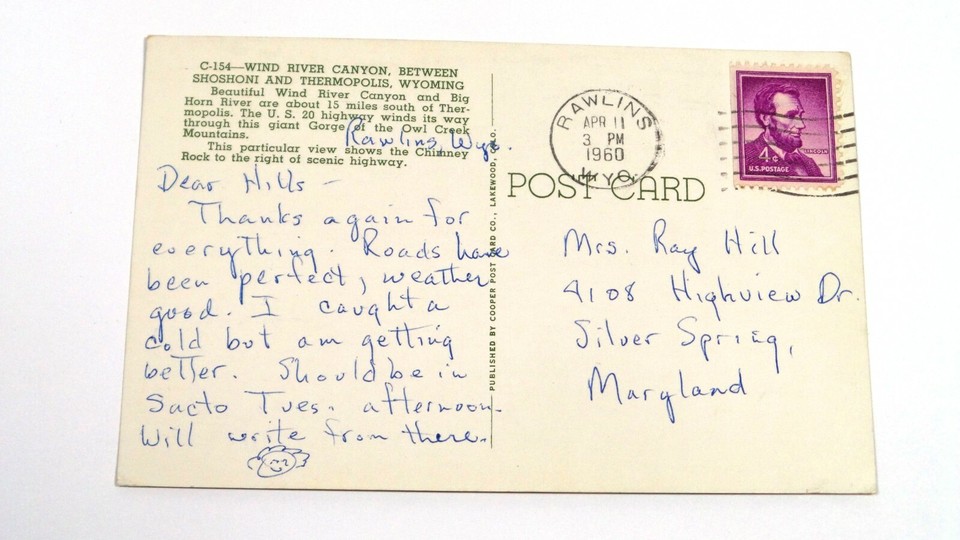 C-154—WIND RIVER CANYON, BETWEEN
SHOSHONI AND THERMOPOLIS, WYOMING
Beautiful Wind River Canyon and Big
Horn River are about 15 miles south of Ther-
mopolis. The U. S. 20 highway winds its way
through this giant Gorge of the Owl Creek
Mountains.
This particular view shows the Chimney
Rock to the right of scenic highway.
Rawlins, Wyo.
Dear Hills -
Thanks again for
everything. Roads have
been perfect, weather
good. I caught a
cold but am getting
better. Should be in
Sacto Tues. afternoon.
Will write from there.
PUBLISHED BY COOPER POST CARD CO., LAKEWOOD, COLO.
RAWLINS
APR 11
3 PM
1960
WYO.
4¢
LINCOLN
U.S. POSTAGE
POST CARD
Mrs. Ray Hill
9108 Highview Dr.
Silver Spring,
Maryland